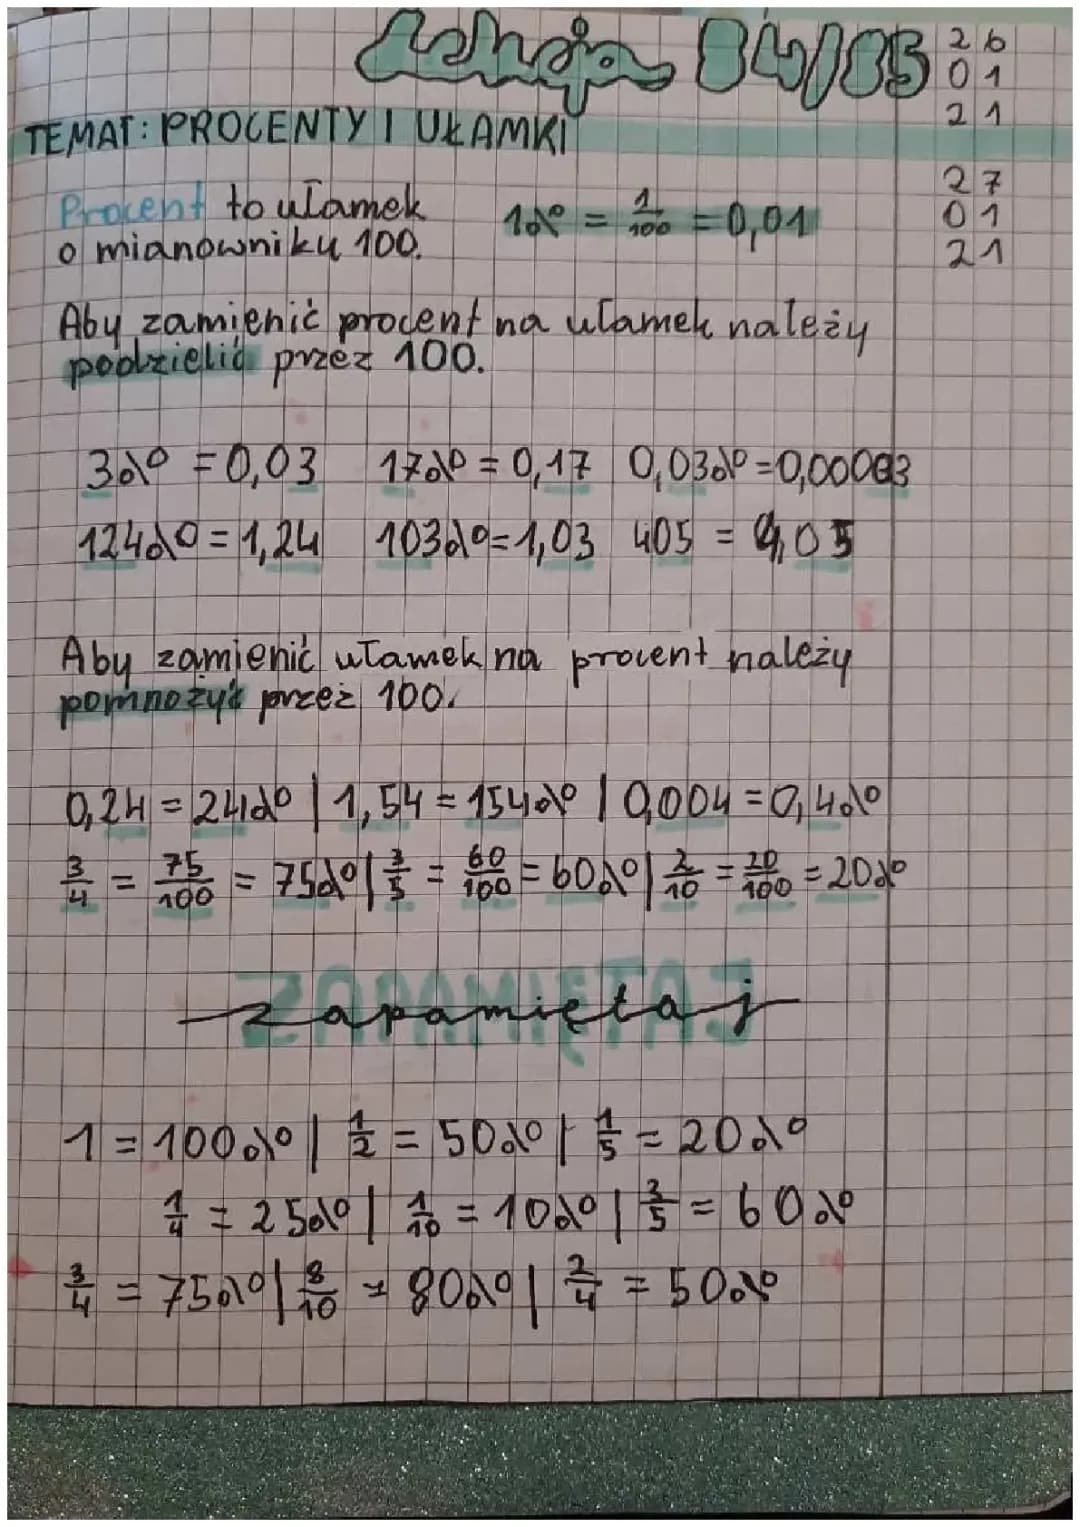 Lekcja 84/85
26
01
21
TEMAT: PROCENTY I UŁAMKI
27
01
21
Procent to ułamek
o mianowniku 100.
1% = 1/100 = 0,01
Aby zamienić procent na ułamek należy
podzielić przez 100.
3% = 0,03 17% = 0,17 0,03% = 0,0003
124% = 1,24 103% = 1,03 405 = 4,05
Aby zamienić ułamek na procent należy
pomnożyć przez 100.
0,24 = 24% | 1,54 = 154% | 0,004 = 0,4%
3/4 = 75/100 = 75% | 3/5 = 60/100 = 60% | 2/10 = 20/100 = 20%
ZAPAMIĘTAJ
zapamiętaj
1 = 100% | 1/2 = 50% | 1/5 = 20%
1/4 = 25% | 1/10 = 10% | 3/5 = 60%
3/4 = 75% | 8/10 = 80% | 2/4 = 50%